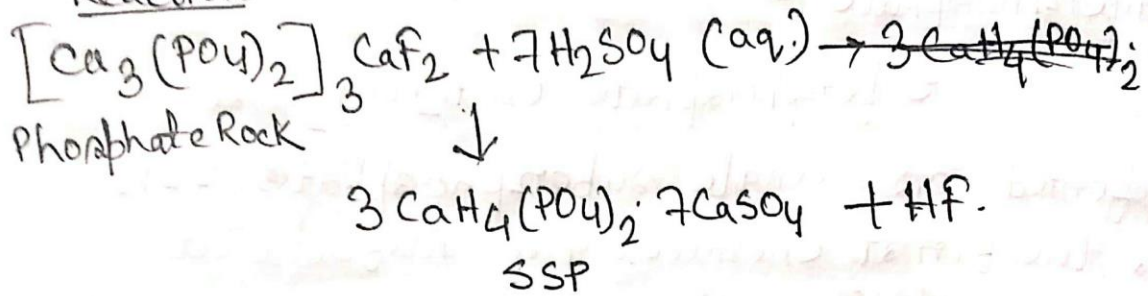 Reaction
[Ca3(PO4)2]3 CaF2 + 7H2SO4 (aq.) → 3 CaH4(PO4)2.
Phosphate Rock ↓
3 CaH4(PO4)2. 7CaSO4 + HF.
SSP